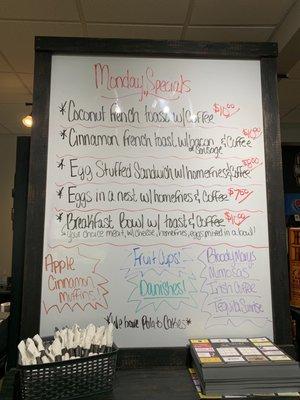 Monday Specials
* Coconut french toast w/ Coffee $10.00
* Cinnamon french toast w/ bacon & Coffee $10.00
Sausage
* Egg Stuffed Sandwich w/ homefries & Coffee
* Eggs in a nest w/ homefries & Coffee $7.55
* Breakfast Bowl w/ toast & Coffee
*Your choice meat, w/ cheese, homefries, eggs mixed in a bowl!
Apple
Cinnamon
Muffins
Fruit Cups
Danishes!
Bloody Marys
Mimosas
Irish Coffee
Tequila Sunrise
*We have Potato Cakes*